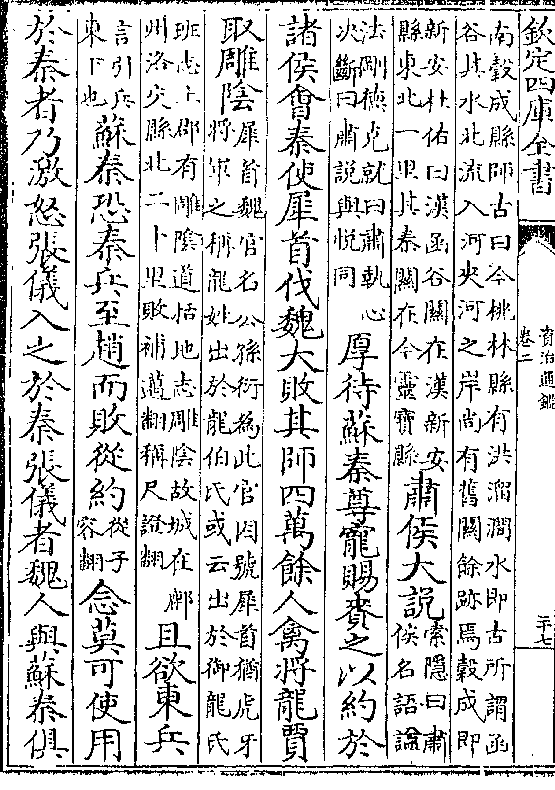 欽定四庫全書
資治通鑑
卷二
南穀成縣師古曰今桃林縣有洪溜澗水即古所謂函
谷其水北流入河夾河之岸尚有舊關餘跡焉穀成即
新安杜佑曰漢函谷關在漢新安
縣東北一里其秦關在今靈寶縣
肅侯大說
索隱曰肅
侯名語諡
法剛德克就曰肅執心
決斷曰肅說與悅同
厚待蘇秦尊寵賜賚之以約於
諸侯會秦使犀首伐魏大敗其師四萬餘人禽將龍賈
取雕陰
犀首魏官名公孫衍為此官因號犀首猶虎牙
將軍之稱龍姓出於龍伯氏或云出於御龍氏
班志上郡有雕陰道括地志雕陰故城在鄜
州洛交縣北二十里敗補邁翻稱尺證翻
且欲東兵
言引兵
東下也
蘇秦恐秦兵至趙而敗從約
從子
容翻
念莫可使用
於秦者乃激怒張儀入之於秦張儀者魏人與蘇秦俱